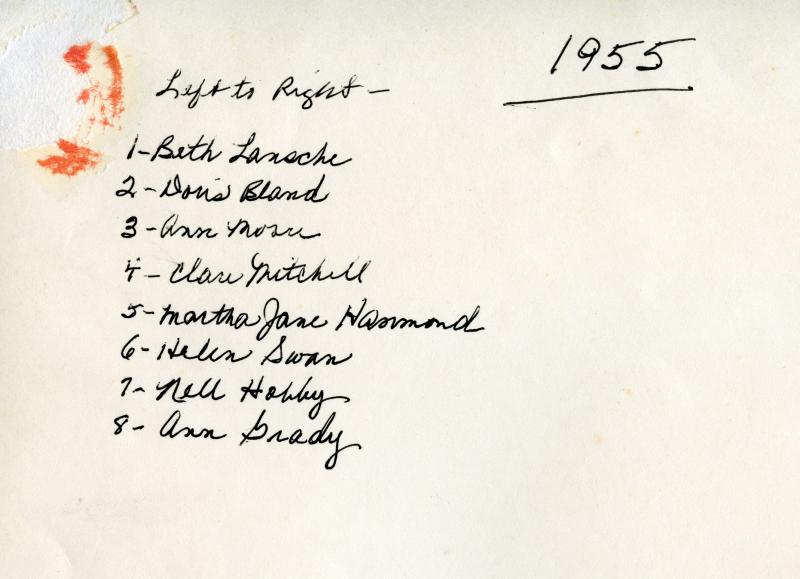 1955
Left to Right -
1- Beth Lansche
2- Doris Bland
3- Ann Moore
4- Clare Mitchell
5- Martha Jane Hammond
6- Helen Swan
7- Nell Hobby
8- Ann Grady